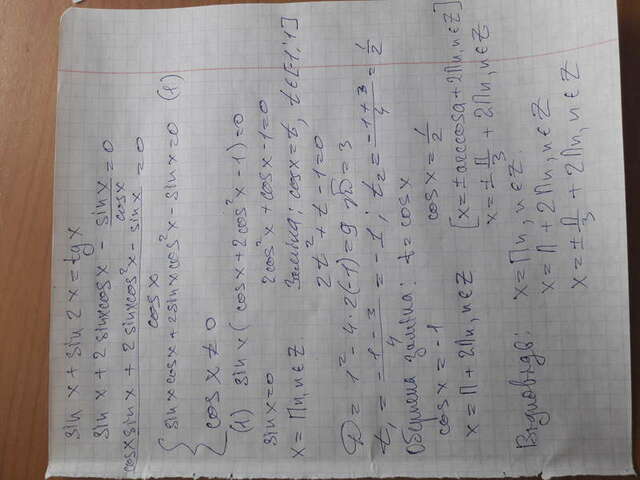 sin x + sin 2x = tg x
sin x + 2 sinx cosx - sinx/cosx = 0
(cosx sinx + 2 sinx cos²x - sinx)/cosx = 0
{ sinx cosx + 2 sinx cos²x - sinx = 0 (1)
cos x ≠ 0
(1) sin x ( cosx + 2cos²x - 1) = 0
sin x = 0 2cos²x + cosx - 1 = 0
x = Πn, n ∈ Z. Заміна: cosx = t, t ∈ [-1; 1]
2t² + t - 1 = 0
D = 1² - 4·2(-1) = 9 √D = 3
t₁ = (-1-3)/4 = -1; t₂ = (-1+3)/4 = 1/2
Обернена заміна: t = cosx
cosx = -1 cosx = 1/2
x = Π + 2Πn, n ∈ Z [x = ± arccosa + 2Πn, n ∈ Z]
x = ± Π/3 + 2Πn, n ∈ Z
Відповідь: x = Πn, n ∈ Z.
x = Π + 2Πn, n ∈ Z
x = ± Π/3 + 2Πn, n ∈ Z